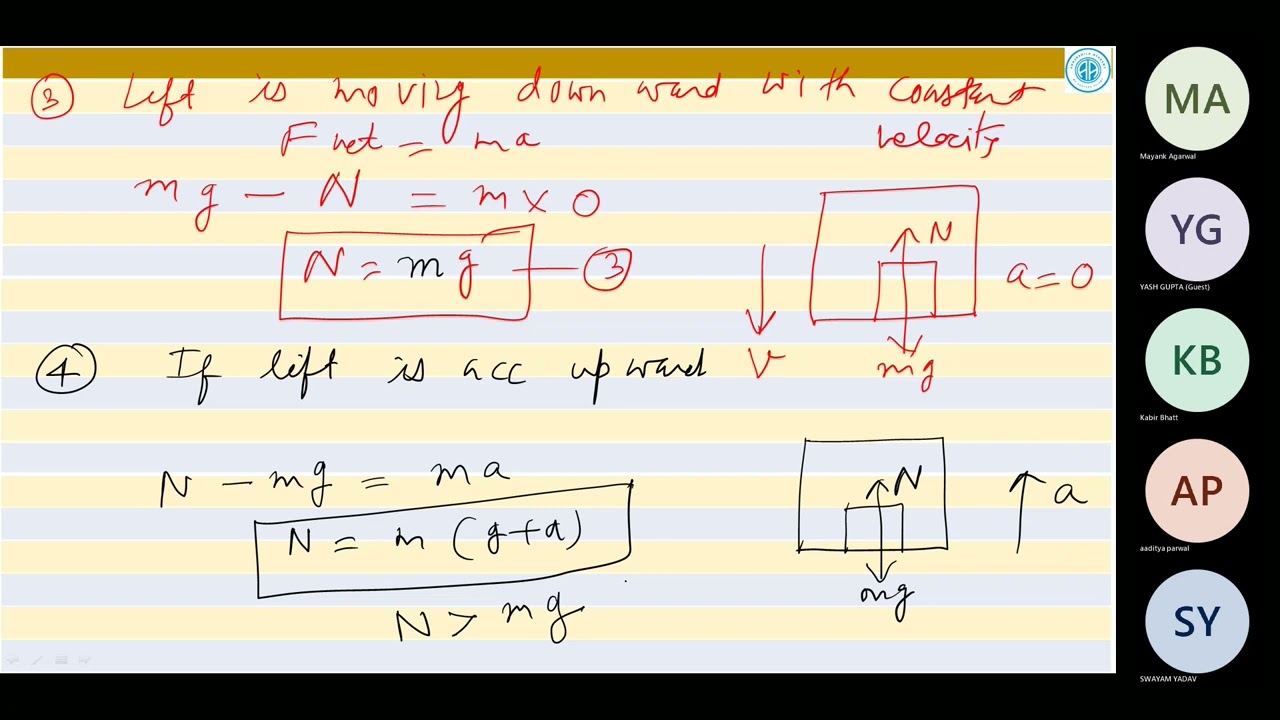 ③ Left is moving down ward with constant
velocity
F net = ma
mg - N = m x 0
N = mg — ③
N
a = 0
V
mg
④ If left is acc upward
N - mg = ma
N = m (g+a)
N > mg
N
a
mg
MA
Mayank Agarwal
YG
YASH GUPTA (Guest)
KB
Kabir Bhatt
AP
aaditya parwal
SY
SWAYAM YADAV